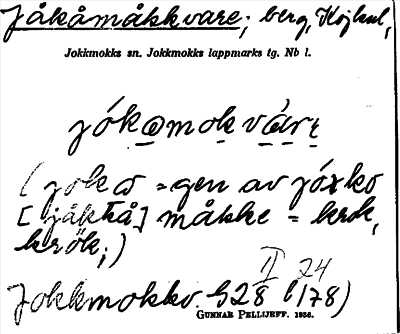 Jåkåmåkkvare; berg, Kojkul,
Jokkmokks sn. Jokkmokks lappmarks tg. Nb l.
jókɷmokváre
(joka = gen av jóxko
[jåkkå] måkke = krok,
krök;)
II 24
Jokkmokkv. S 28 (178)
GUNNAR PELLIJEFF. 1936.